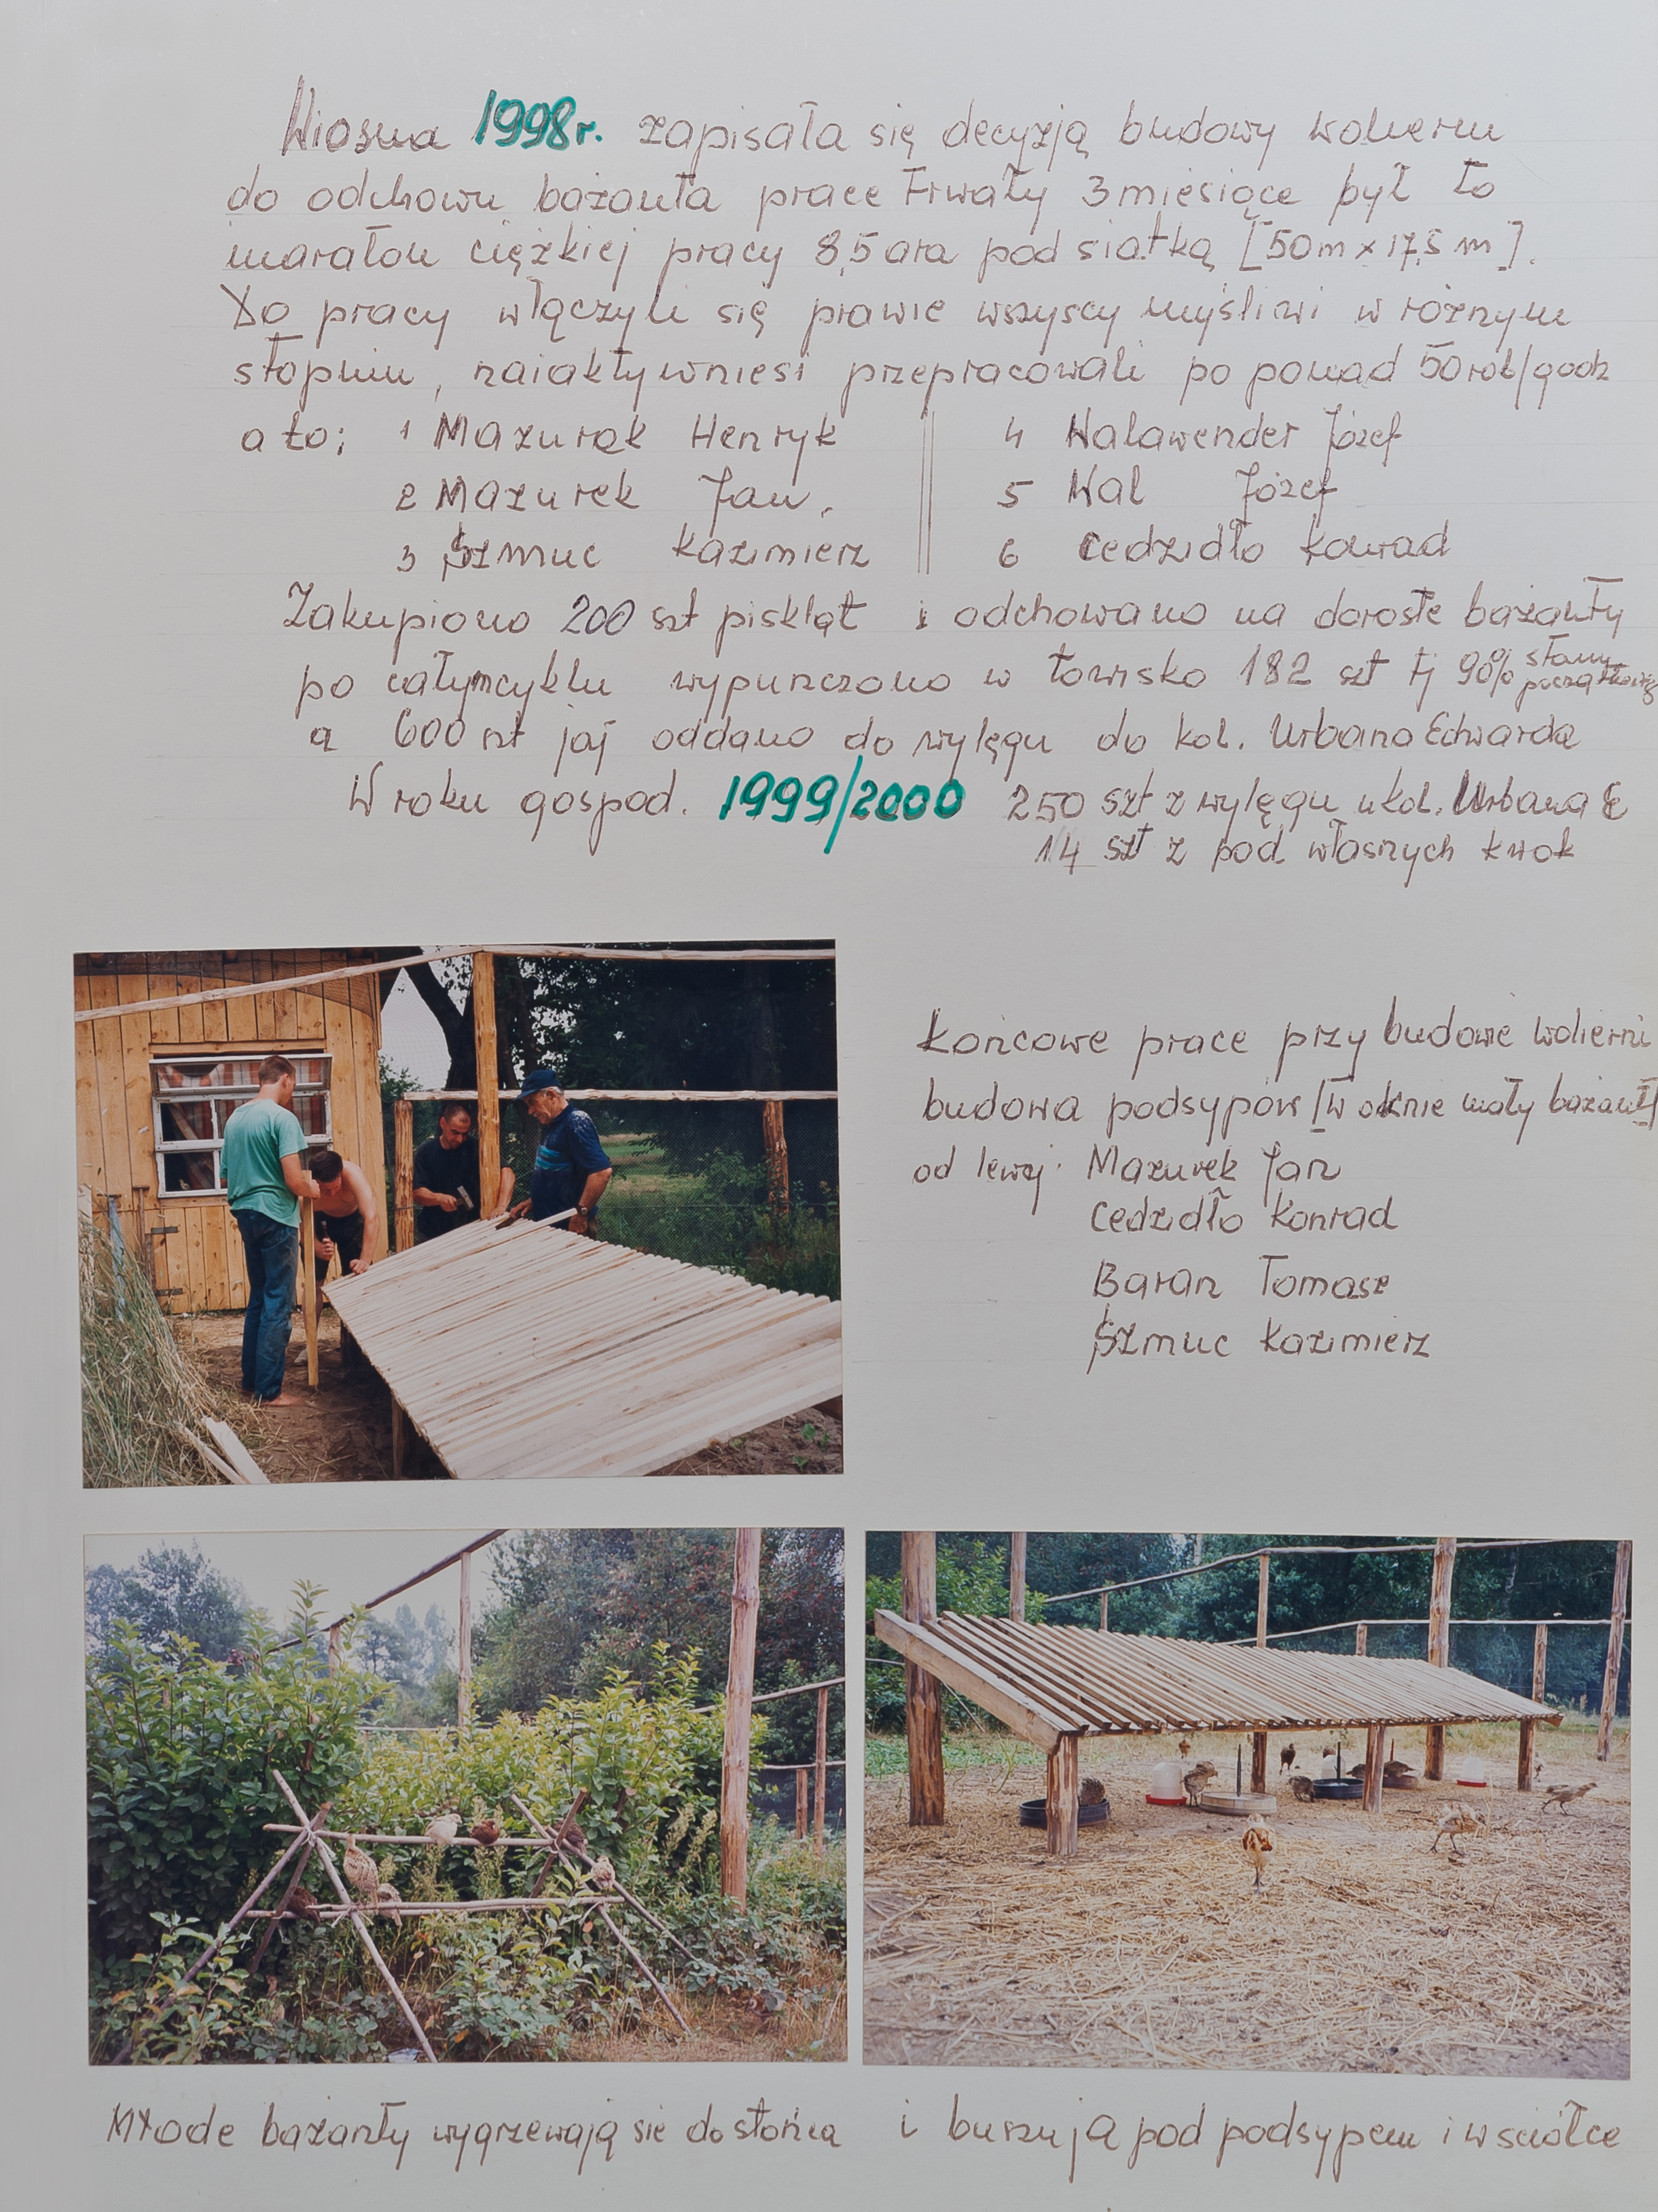 Wiosna 1998r. zapisała się decyzją budowy wolieru
do odchowu bażanta prace trwały 3 miesiące był to
maraton ciężkiej pracy 8,5 ara pod siatką [50m x 17,5 m].
Do pracy włączyli się prawie wszyscy myśliwi w różnym
stopniu, naiaktywniesi przepracowali po ponad 50 rob/godz
a to; 1 Mazurek Henryk 4 Walawender Józef
2 Mazurek Jan, 5 Wal Józef
3 Szmuc Kazimierz 6 Cedzidło Konrad
Zakupiono 200 szt piskląt i odchowano na dorosłe bażanty
po całym cyklu wypuszczono w łowisko 182 szt tj 90% stanu początkowego
a 600 szt jaj oddano do wylęgu do kol. Urbana Edwarda
W roku gospod. 1999/2000 250 szt z wylęgu u kol. Urbana E
14 szt z pod własnych kwok
Końcowe prace przy budowie wolierni
budowa podsypów [w oknie mały bażant]
od lewej: Mazurek Jan
Cedzidło Konrad
Baran Tomasz
Szmuc Kazimierz
Młode bażanty wygrzewają sie do słońca i buszują pod podsypem i w sciółce